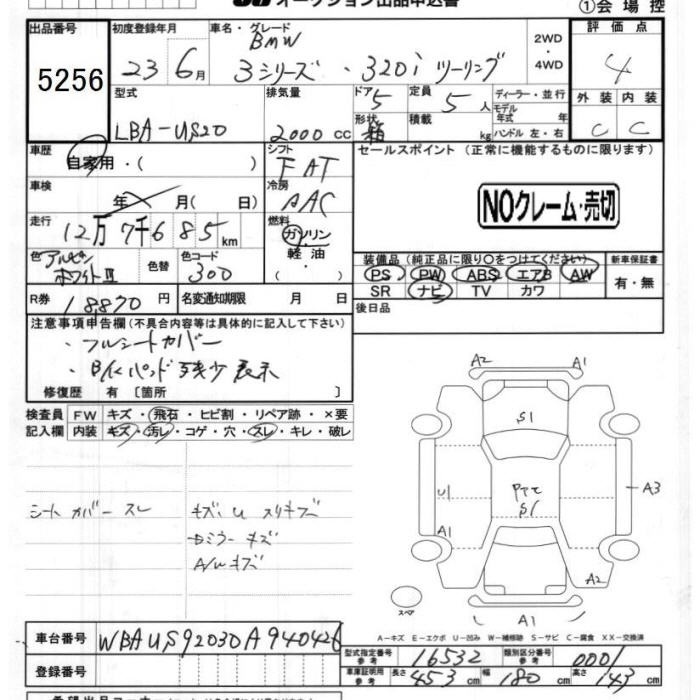 オークション出品申込書
①会場控
出品番号
5256
初度登録年月
23 6月
車名・グレード
BMW
3シリーズ・320i ツーリング
2WD・4WD
評価点
4
型式
LBA-US20
排気量
2000 cc
ドア
5
定員
5人
形状
箱
積載
kg
ディーラー・並行
モデル年式 年
ハンドル 左・右
外装 内装
C C
車歴
自家用・( )
シフト
FAT
車検
年 月( 日)
冷房
AAC
走行
12万7千685km
燃料
ガソリン
軽油
・( )
色
アルピンホワイトIII
色替
色コード
300
R券
18870円
名変通知期限 月 日
セールスポイント (正常に機能するものに限ります)
NOクレーム・売切
装備品 (純正品に限り○をつけてください)
PS PW ABS エアB AW
SR ナビ TV カワ
新車保証書
有・無
後日品
注意事項申告欄(不具合内容等は具体的に記入して下さい)
・フルシートカバー
・B/Kパッド残少表示
修復歴 有〔箇所 〕
検査員記入欄
FW キズ・飛石・ヒビ割・リペア跡・×要
内装 キズ・汚レ・コゲ・穴・スレ・キレ・破レ
シートカバースレ
キズ、U スリキズ
ミラーキズ
A/Wキズ
A2 A1
S1
U1
S1
A3
A1
A2
スペア
A1
A-キズ E-エクボ U-凹み W-補修跡 S-サビ C-腐食 XX-交換済
車台番号
WBAUS92030A940426
型式指定番号 参考
16532
類別区分番号 参考
0001
登録番号
車庫証明用 参考
長さ 453cm
幅 180cm
高さ 143cm